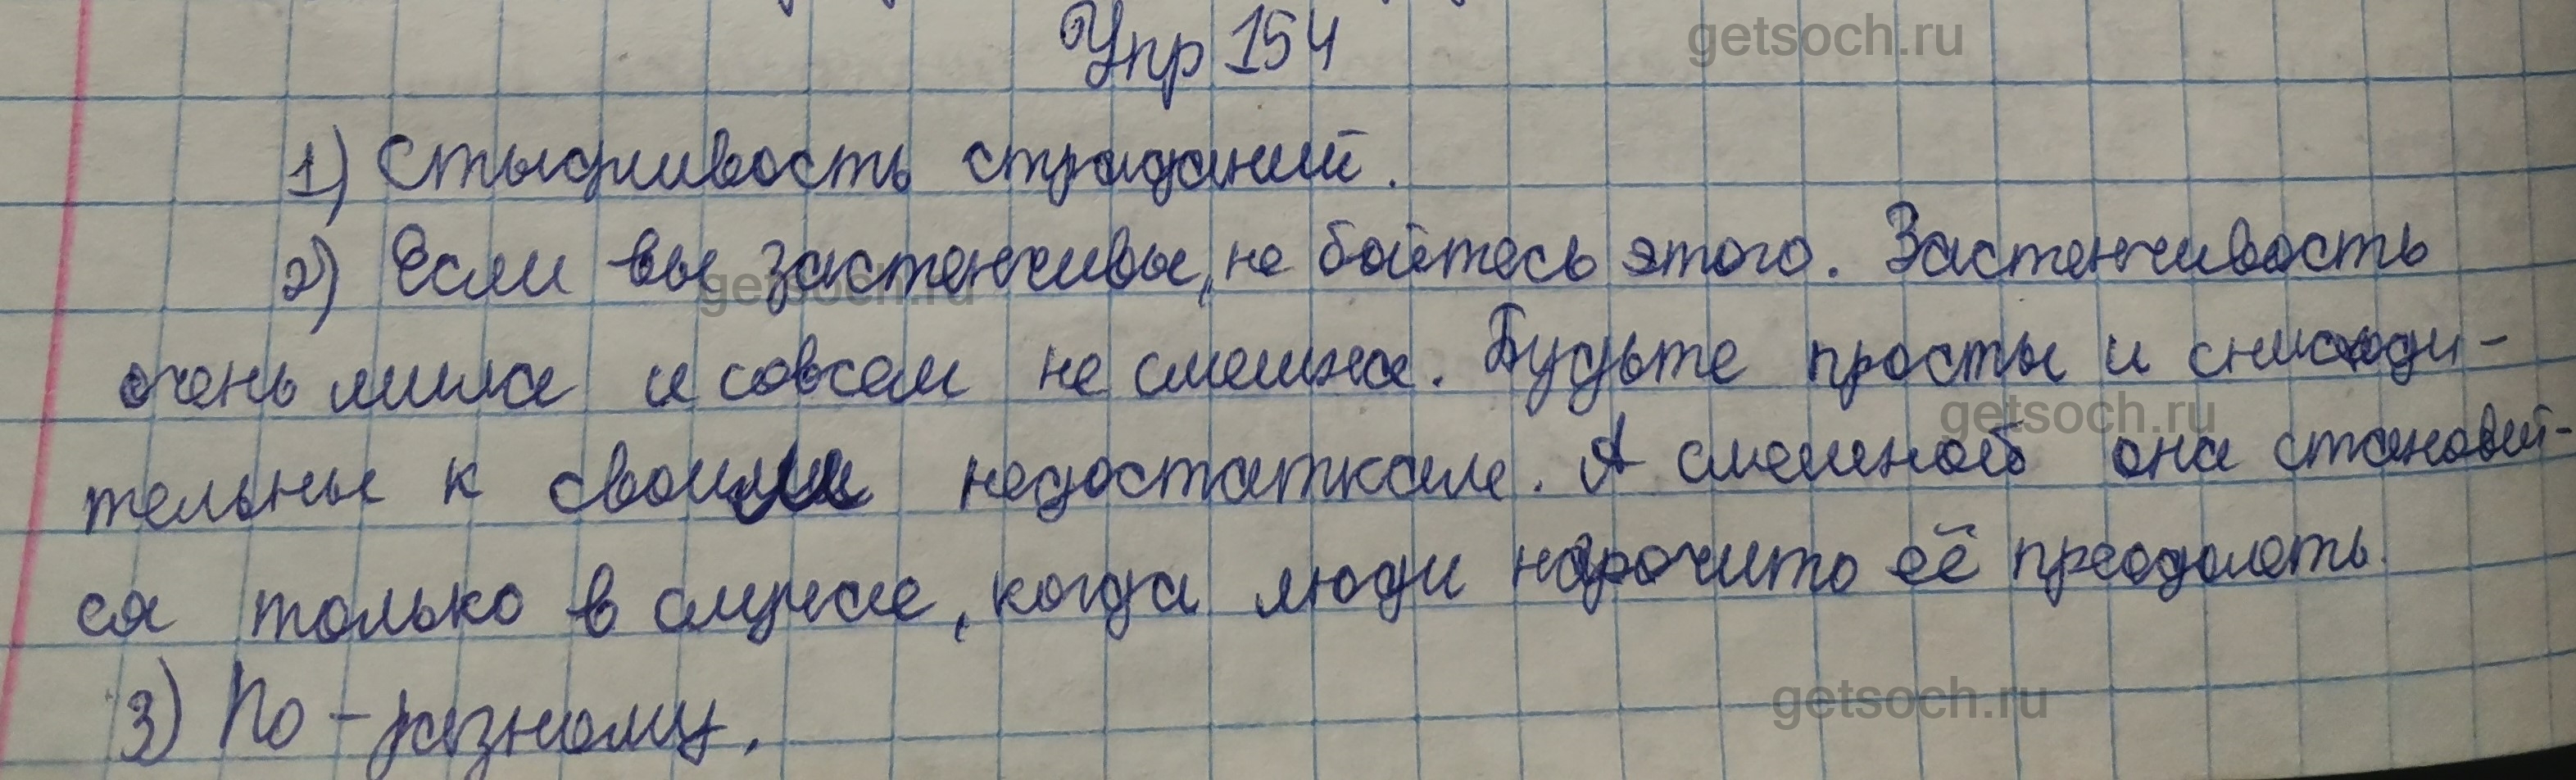 Упр 154
getsoch.ru
1) Стыдливость страданий.
2) Если вы застенчивы, не бойтесь этого. Застенчивость
getsoch.ru
очень мила и совсем не смешна. Будьте просты и снисходи-
getsoch.ru
тельны к своим недостаткам. А смешной она становит-
ся только в случае, когда люди нарочито её преодолеть.
getsoch.ru
3) По-разному.